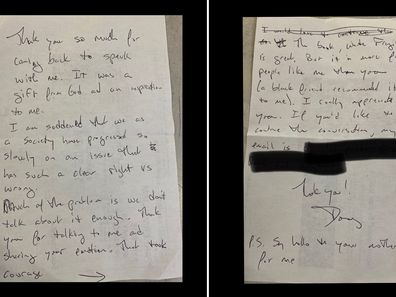 Thank you so much for
coming back to speak
with me. It was a
gift from God and an inspiration
to me.
I am saddened that we as
a society have progressed so
slowly on an issue that
has such a clear right vs
wrong.
Much of the problem is we don't
talk about it enough. Thank
you for talking to me and
sharing your emotion. That took
courage →
I would love to continue
The book, White Frag
is great. But it is more f
people like me than you
(a black friend recommended it
to me). I really appreciate
you. If you'd like to
continue the conversation, my
email is
Thank you!
Doug
P.S. Say hello to your mother
for me